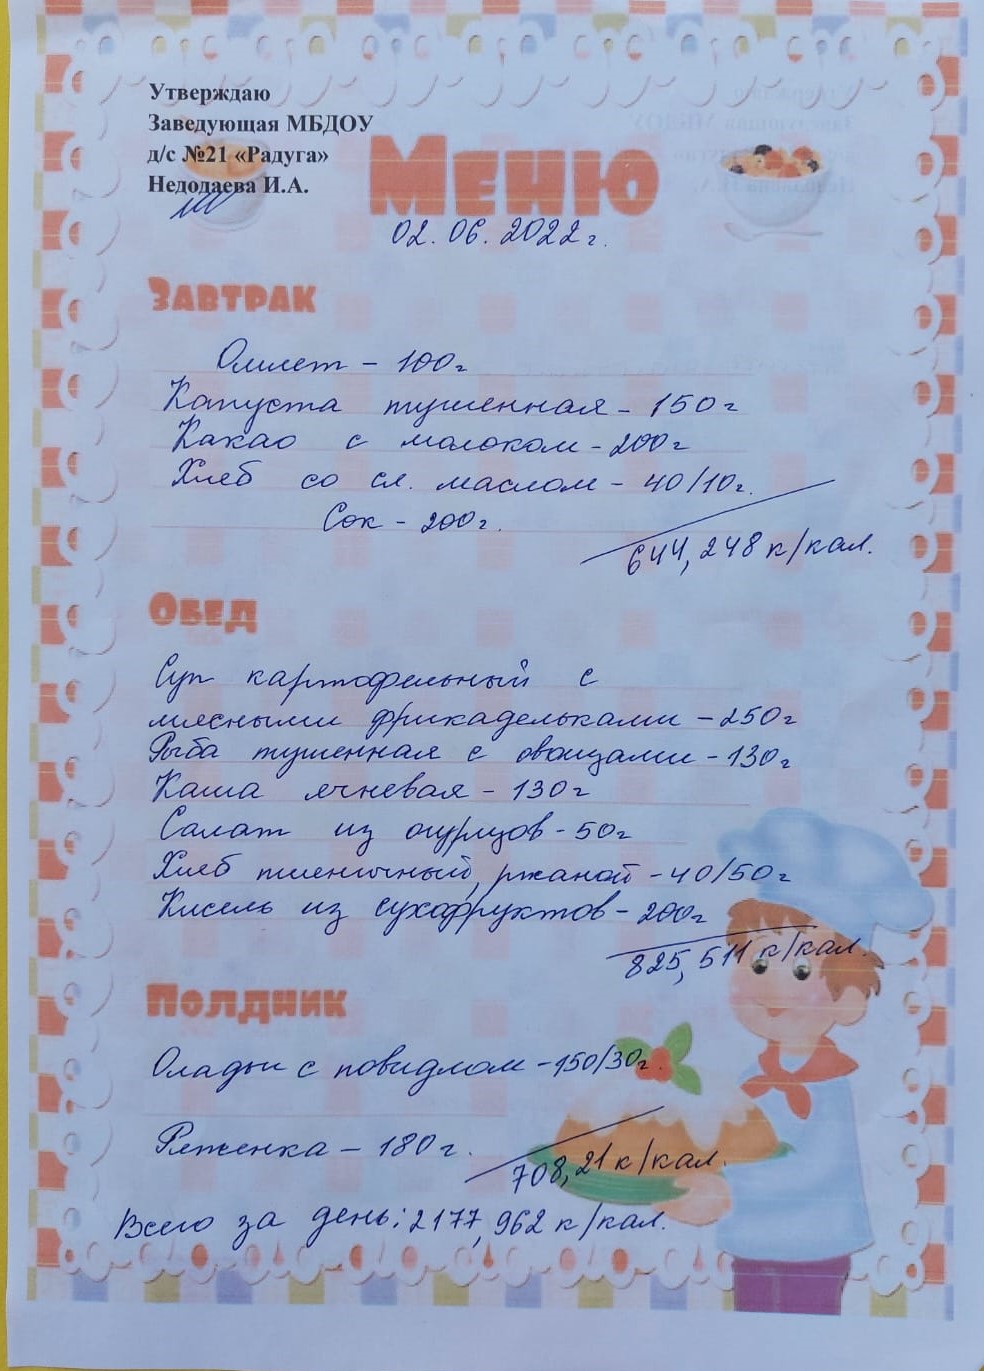 Утверждаю
Заведующая МБДОУ
д/с №21 «Радуга»
Недодаева И.А.
Меню
02.06.2022г.
Завтрак
Омлет - 100г
Капуста тушенная - 150г
Какао с молоком - 200г
Хлеб со сл. маслом - 40/10г.
Сок - 200г.
644,248 к/кал.
Обед
Суп картофельный с
мясными фрикадельками - 250г
Рыба тушенная с овощами - 130г
Каша ячневая - 130г
Салат из огурцов - 50г
Хлеб пшеничный, ржаной - 40/50г
Кисель из сухофруктов - 200г
825,511 к/кал.
Полдник
Оладьи с повидлом - 150/30г.
Ряженка - 180г.
708,21 к/кал.
Всего за день: 2177,962 к/кал.